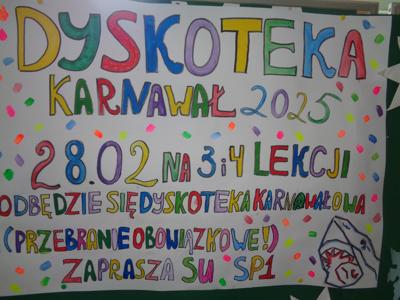 DYSKOTEKA
KARNAWAŁ 2025
28.02 NA 3 i 4 LEKCJI
ODBĘDZIE SIĘ DYSKOTEKA KARNAWAŁOWA
(PRZEBRANIE OBOWIĄZKOWE!)
ZAPRASZA SU SP1